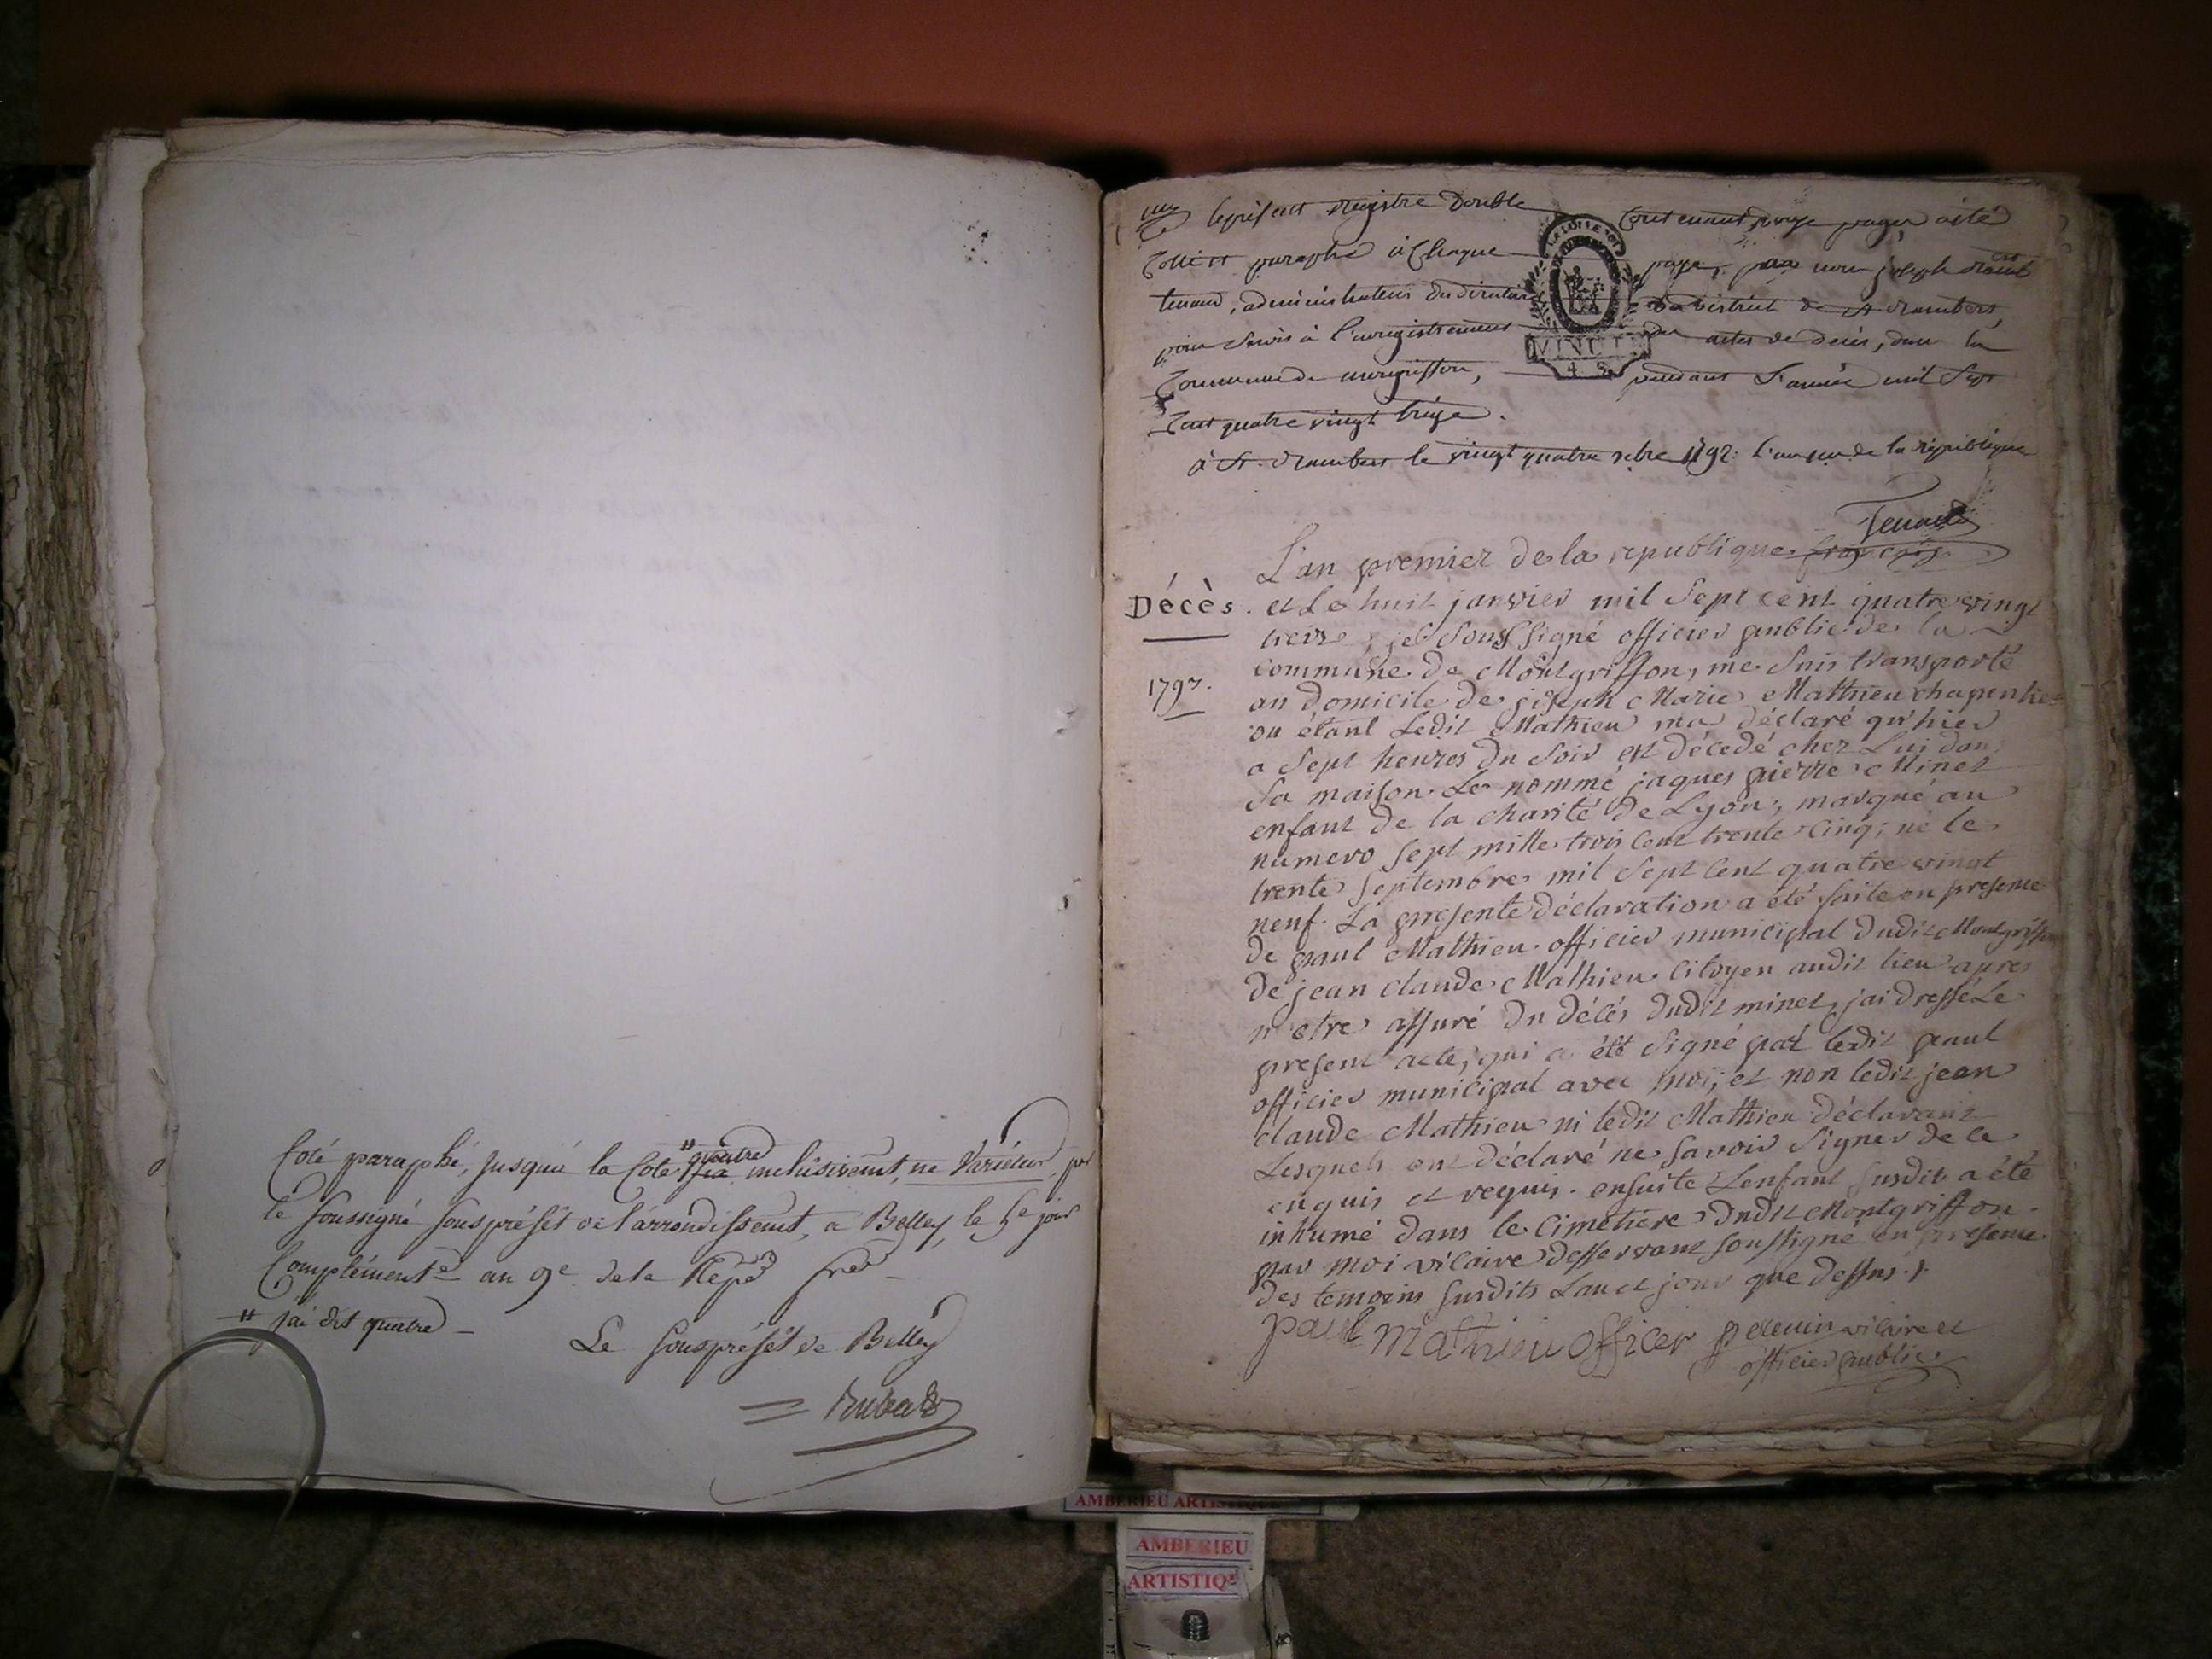 Coté paraphé, jusqu'à la Cote quatre inclusivem̃t, ne Varietur, par
le soussigné souspréfêt de l'arrondissem̃t, a Belley, le 5e jour
Complément.e an 9e de la Répe frse
# j'ai dit quatre
Le souspréfêt de Belley
le présent registre Double contenant pages a été
Cotté et paraphé à Chaque page, par nous joseph
tenand, administrateur du directoire du District de st rambert,
pour servir à l'enregistrement des actes de décès, dans la
Commune de montgriffon, pendant L'année mil Sept
Cent quatre vingt treize.
à St. rambert le vingt quatre xbre 1792. l'an 1er de la république
Tenand
LA LOI LE ROI
VINCIT
L'an premier de la republique françoise
Décès. et Le huit janvier mil Sept cent quatre vingt
treize, je Soussigné officier public de la
commune de Montgriffon, me Suis transporté
1793.
au domicile de joseph Marie Mathieu charpentier
ou étant Ledit Mathieu ma déclaré qu'hier
a Sept heures du Soir est décedé chez Lui dans
Sa maison Le nommé jaques pierre Minet
enfant de la charité de Lyon, marqué au
numero Sept mille trois Cent trente cinq; né le
trente Septembre mil Sept Cent quatre vingt
neuf. La presente déclaration a été faite en presence
de paul Mathieu officier municipal dudit Montgriffon
de jean claude Mathieu Citoyen audit lieu apres
m'etre assuré du décés dudit minet, jai dressé Le
present acte, qui a été Signé par ledit paul
officier municipal avec moi, et non ledit jean
claude Mathieu ni ledit Mathieu déclarant
Lesquels ont déclaré ne Savoir Signer de ce
enquis et requis. ensuite Lenfant susdit a été
inhumé dans le Cimetière dudit Montgriffon
par moi vicaire desservant soussigné en presence
des temoins susdits Lan et jour que dessus
paul mathieu officer vicaire et
officier public
AMBERIEU ARTISTIQUE
AMBERIEU
ARTISTIQ